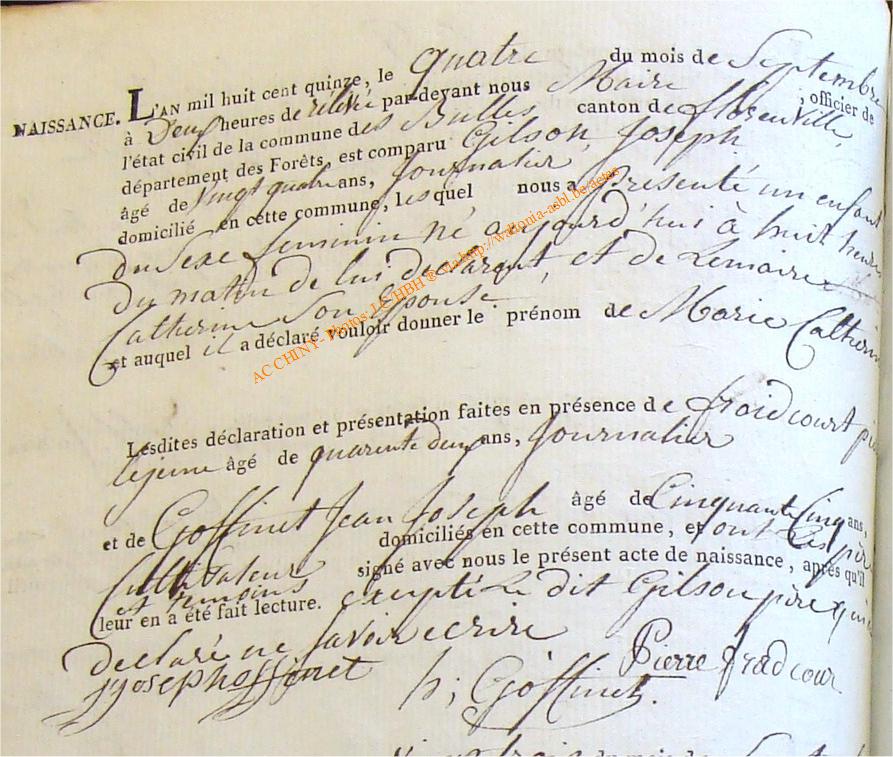 NAISSANCE. L'AN mil huit cent quinze, le quatre du mois de Septembre
à Deux heures de rélevée par-devant nous Maire , officier de
l'état civil de la commune des Bulles canton de florenville,
département des Forêts est comparu Gilson, Joseph
âgé de Vingt quatre ans, Journalier
domicilié en cette commune, lequel nous a présenté un enfant
du Sexe feminin né aujourd'hui à huit heures
du matin de lui declarant, et de Lemaire
Catherine Son Epouse
et auquel il a déclaré vouloir donner le prénom de Marie Catherine
Lesdites déclaration et présentation faites en présence de froidcourt
lejeune âgé de quarente deux ans, Journalier
et de Goffinet Jean Joseph âgé de Cinquante Cinq ans,
Cultivateur domiciliés en cette commune, et ont Les père
et temoins signé avec nous le présent acte de naissance, après qu'il
leur en a été fait lecture. excepté Le dit Gilson père qui a
declaré ne savoir ecrire
Pierre fradcour
h; Goffinet.
AC CHINY- Photos: LC HBH ® via http://wallonia-asbl.be/actes